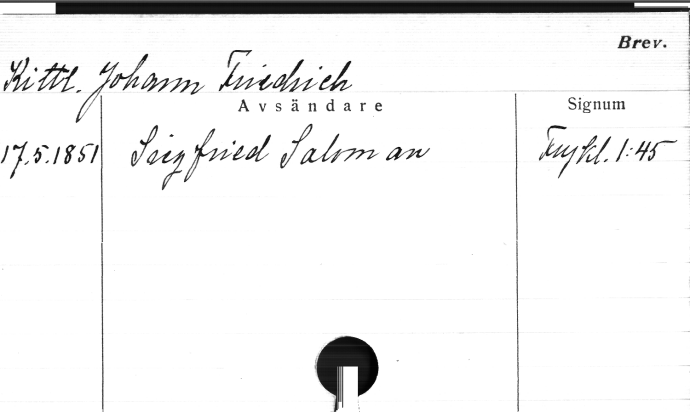 Brev.
Kittl. Johann Friedrich
Avsändare Signum
17.5.1851 Siegfried Saloman Frykl. 1:45